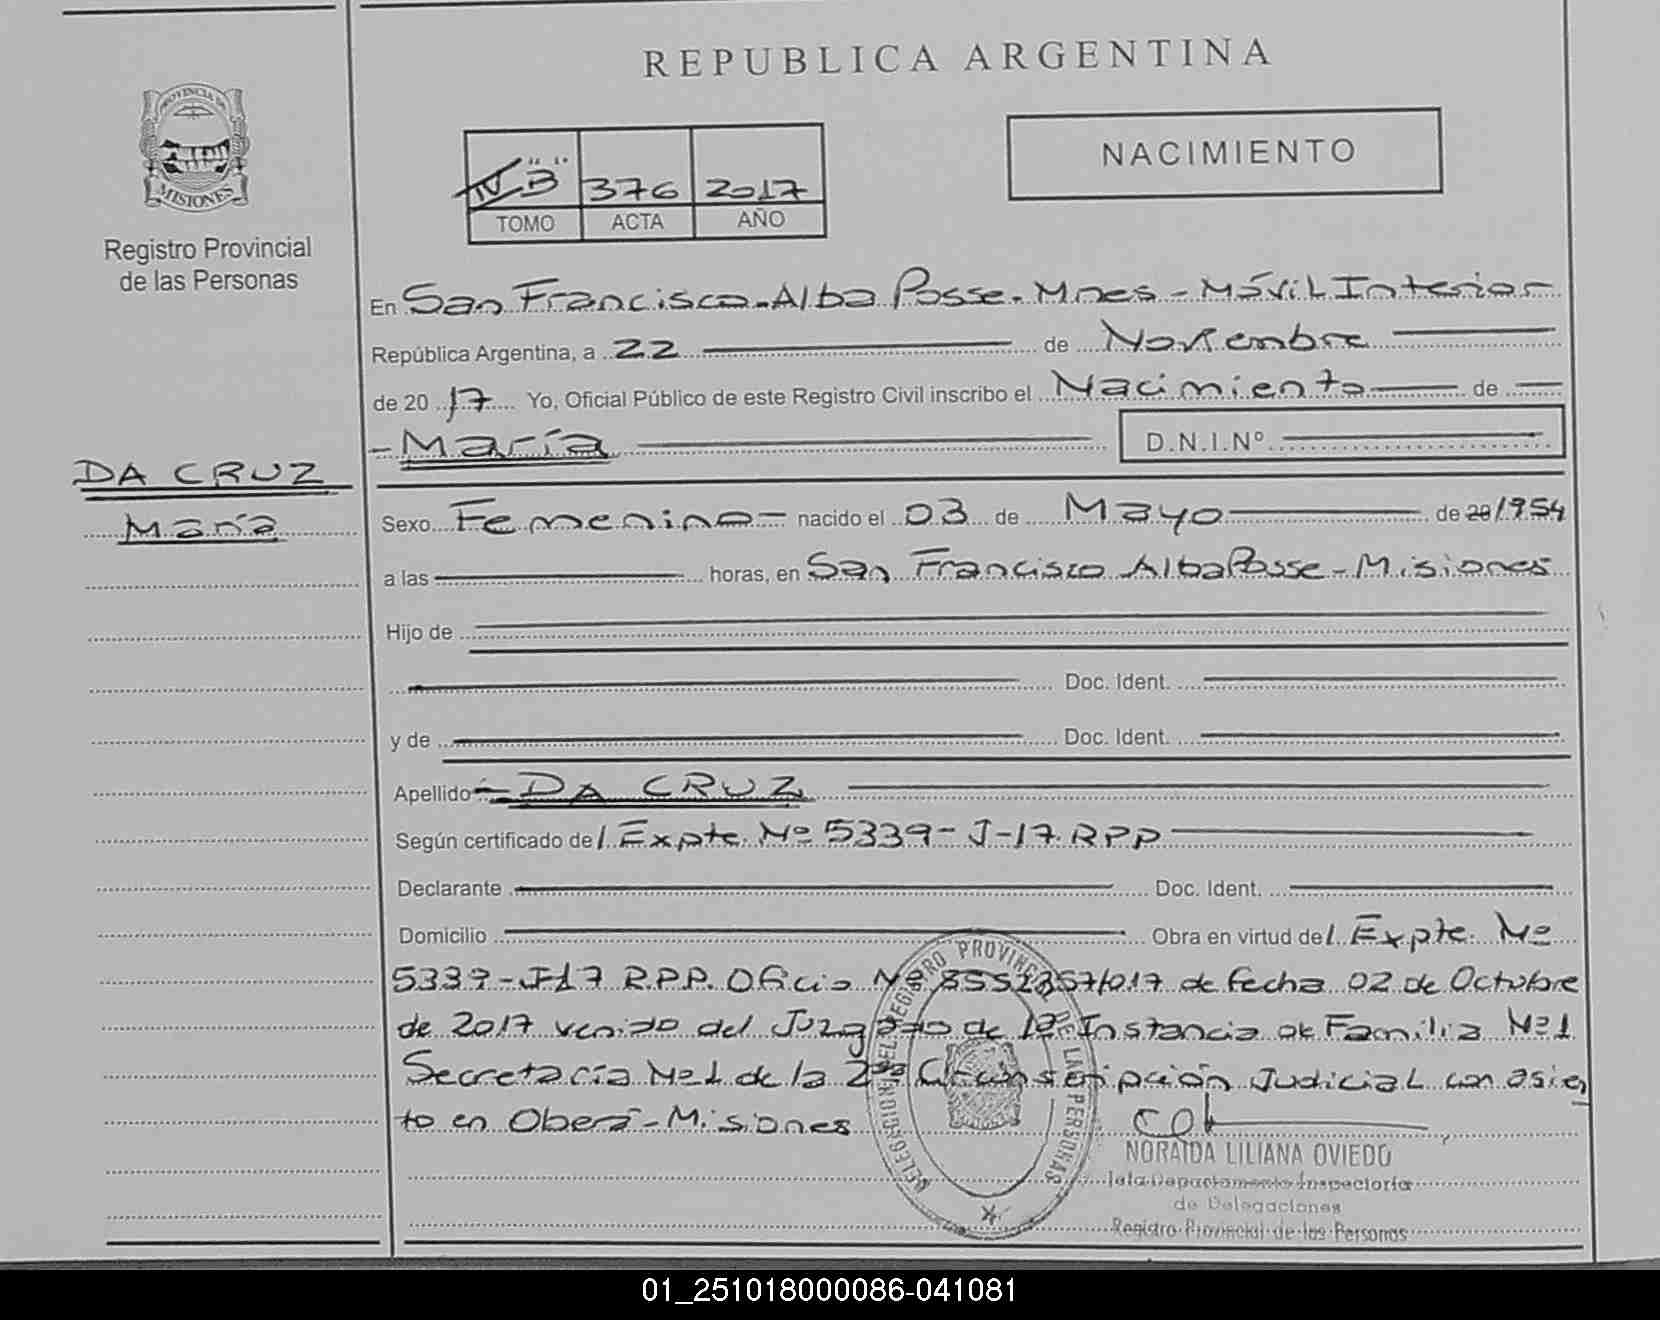 REPUBLICA ARGENTINA
PROVINCIA DE
MISIONES
Registro Provincial
de las Personas
NACIMIENTO
IV "B" 376 2017
TOMO ACTA AÑO
En San Francisco-Alba Posse-Mnes-Móvil Interior
República Argentina, a 22 de Noviembre
de 2017 Yo, Oficial Público de este Registro Civil inscribo el Nacimiento de
- María D.N.I.Nº
DA CRUZ
María
Sexo Femenino nacido el 03 de Mayo de 20/1954
a las horas, en San Francisco Alba Posse-Misiones
Hijo de
Doc. Ident.
y de Doc. Ident.
Apellido - DA CRUZ
Según certificado de/ Expte. Nº 5339-J-17 RPP
Declarante Doc. Ident.
Domicilio Obra en virtud de/ Expte. Nº
5339-J-17 R.P.P. Oficio Nº /017 de fecha 02 de Octubre
de 2017 venido del Juzgado de 1ra Instancia de Familia Nº1
Secretaría Nº1 de la 2da Circunscripción Judicial con asien
to en Oberá-Misiones
DELEGACION DEL REGISTRO PROVINCIAL DE LAS PERSONAS
NORAIDA LILIANA OVIEDO
Jefa Departamento Inspectoría
de Delegaciones
Registro Provincial de las Personas
01_251018000086-041081